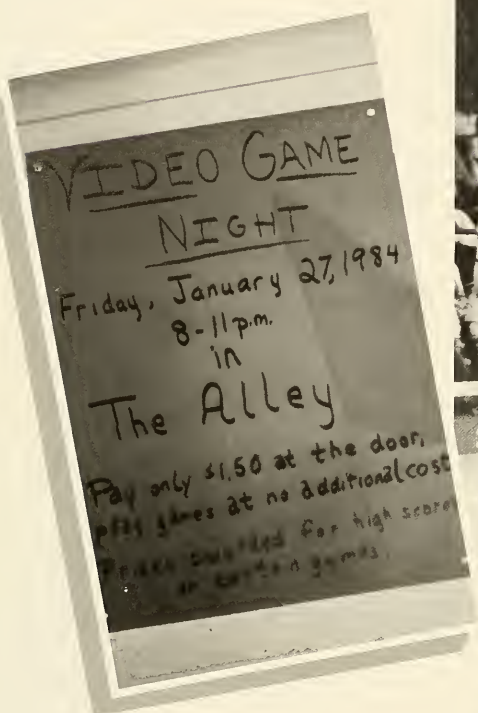 VIDEO GAME
NIGHT
Friday, January 27, 1984
8-11 p.m.
in
The Alley
Pay only $1.50 at the door,
play games at no additional cost
Prizes awarded for high scores
on certain games.